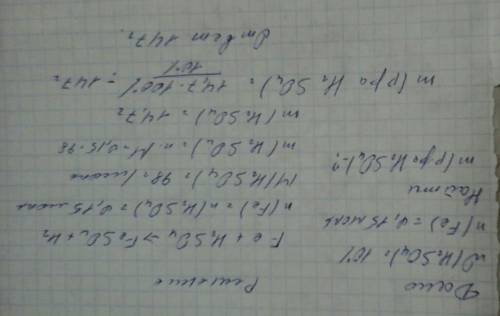 Дано
ω(H₂SO₄) = 10%
n(Fe) = 0,15 моль
Найти
m(р-ра H₂SO₄)-?
Решение
Fe + H₂SO₄ → FeSO₄ + H₂
n(Fe) = n(H₂SO₄) = 0,15 моль
M(H₂SO₄) = 98 г/моль
m(H₂SO₄) = n · M = 0,15 · 98
m(H₂SO₄) = 14,7 г
m(р-ра H₂SO₄) = 14,7 · 100% / 10% = 147 г
Ответ 147 г.